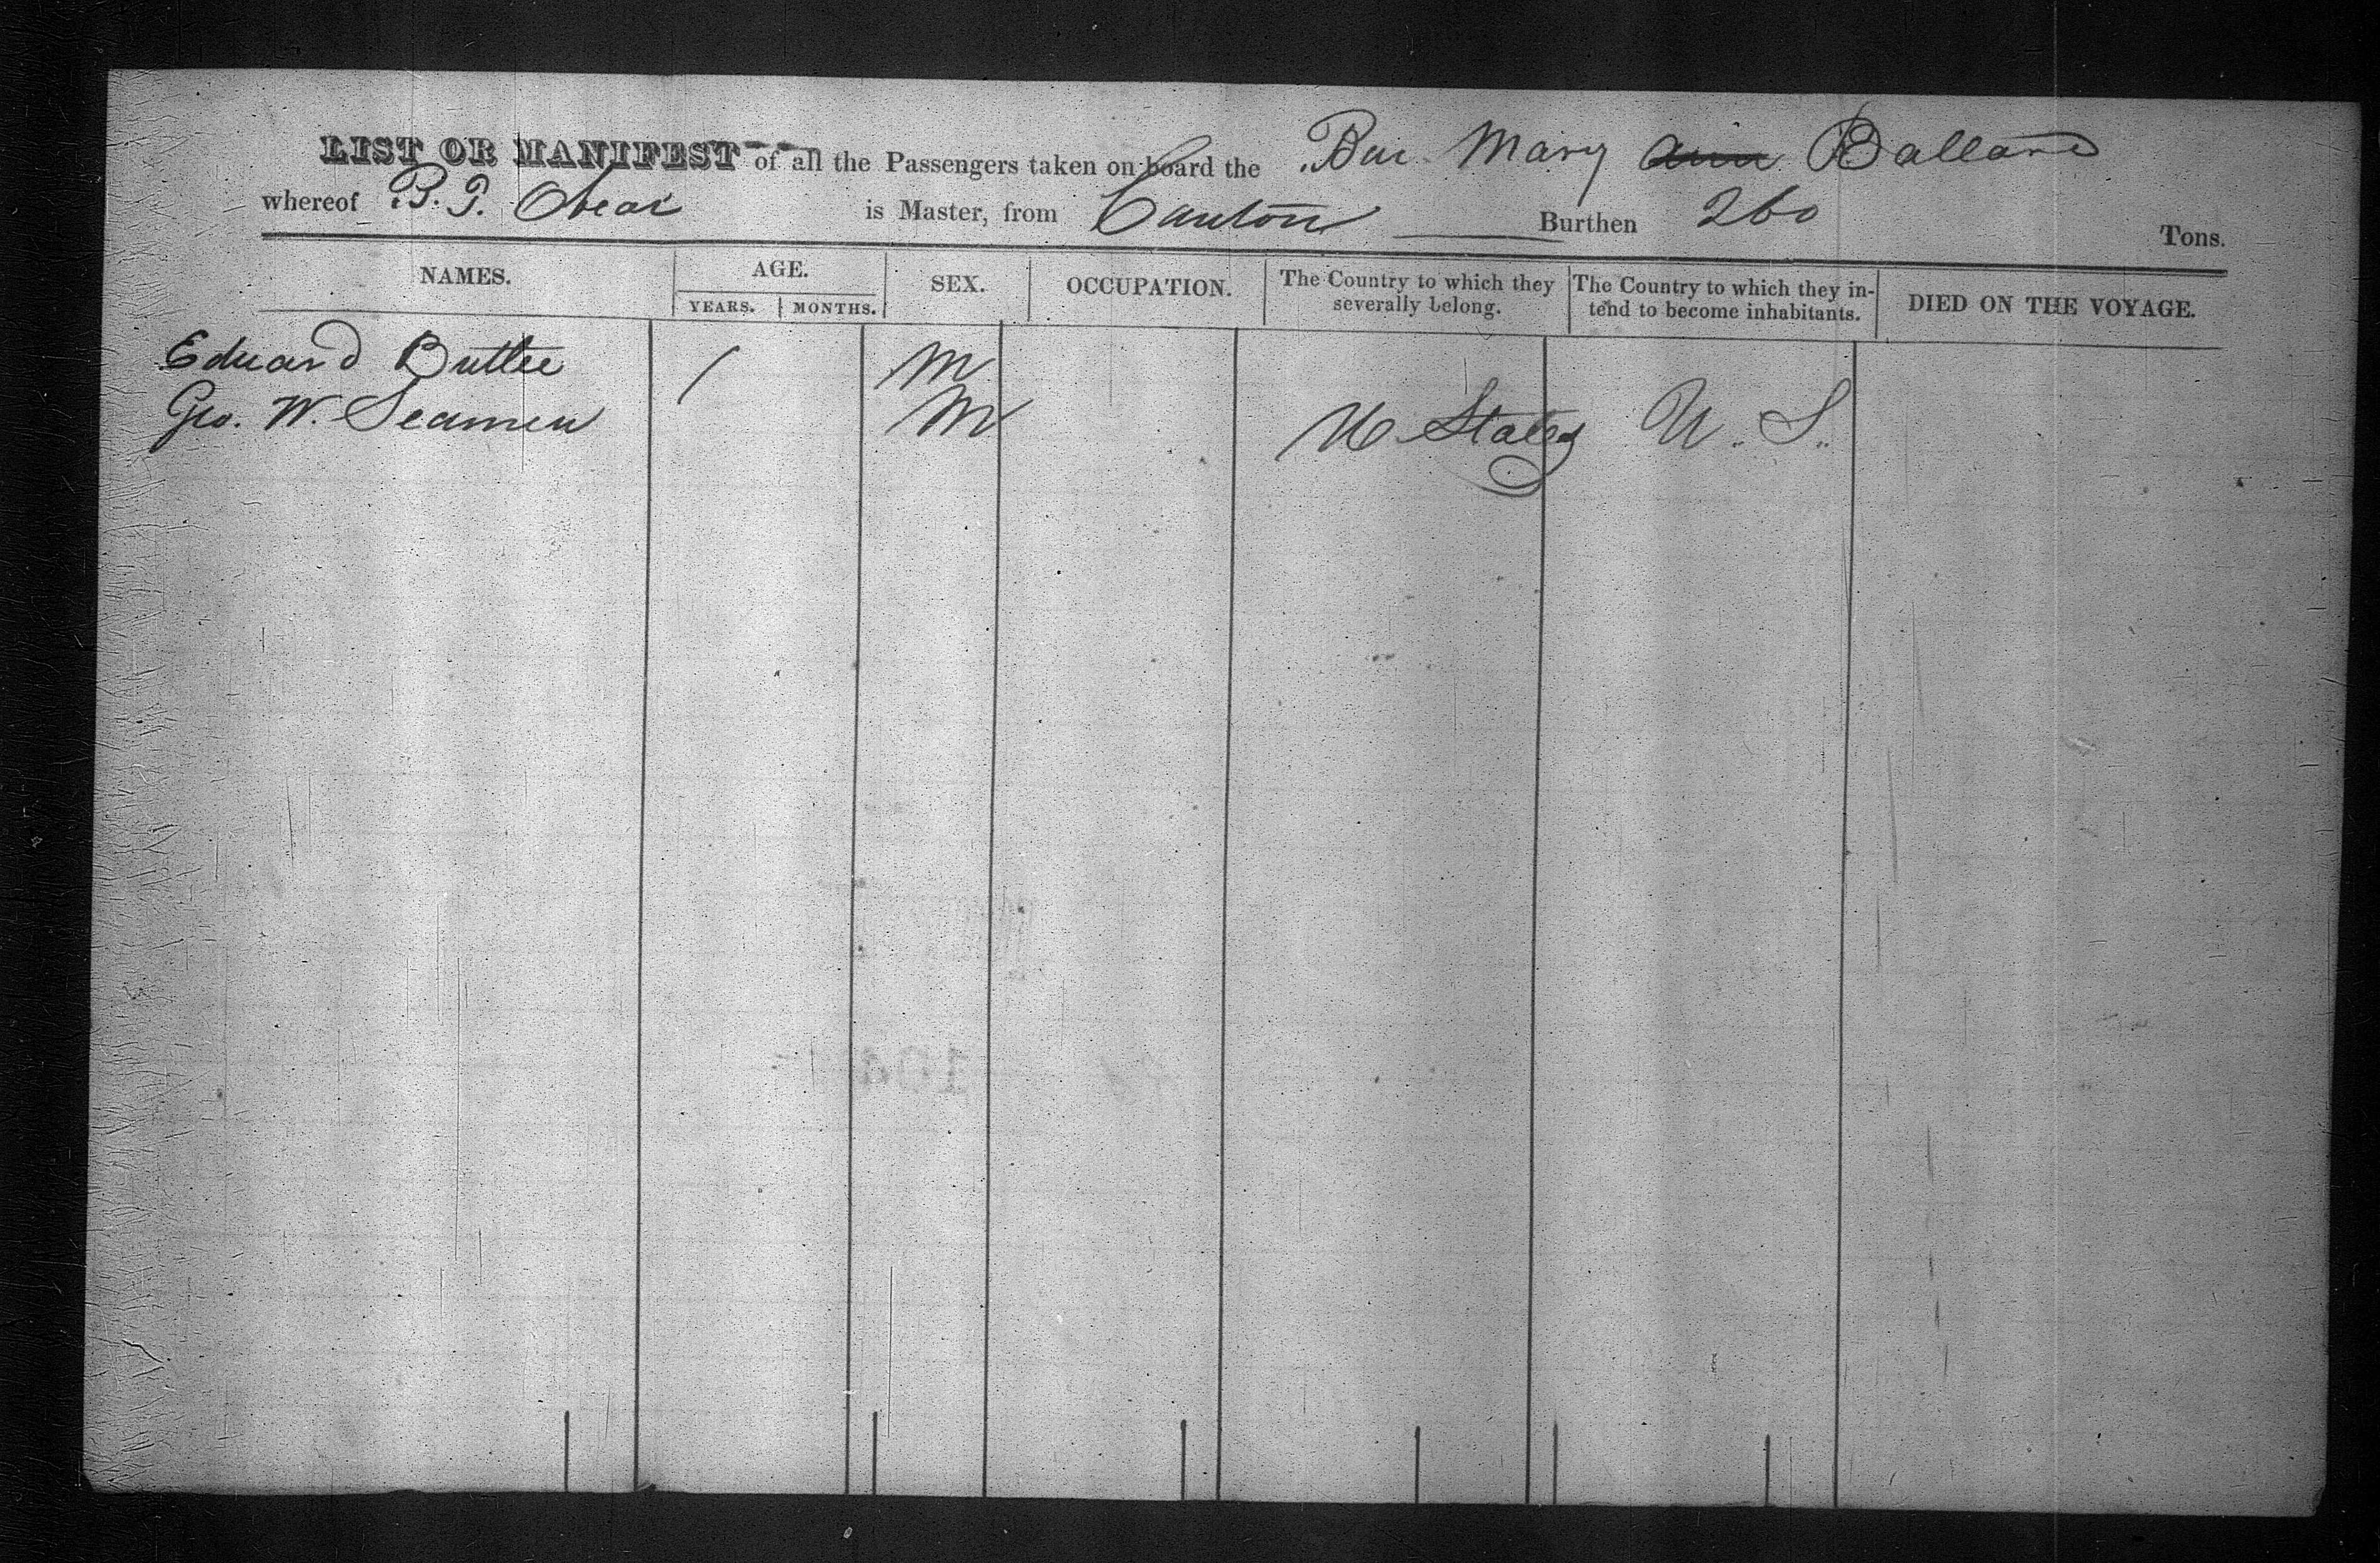 LIST OR MANIFEST of all the Passengers taken on board the Bar Mary Ballard
whereof P. T. Obear is Master, from Canton Burthen 260 Tons.
NAMES. AGE. SEX. OCCUPATION. The Country to which they severally belong. The Country to which they intend to become inhabitants. DIED ON THE VOYAGE.
YEARS. MONTHS.
Edward Butler M
Geo. W. Seamen M U States U. S.